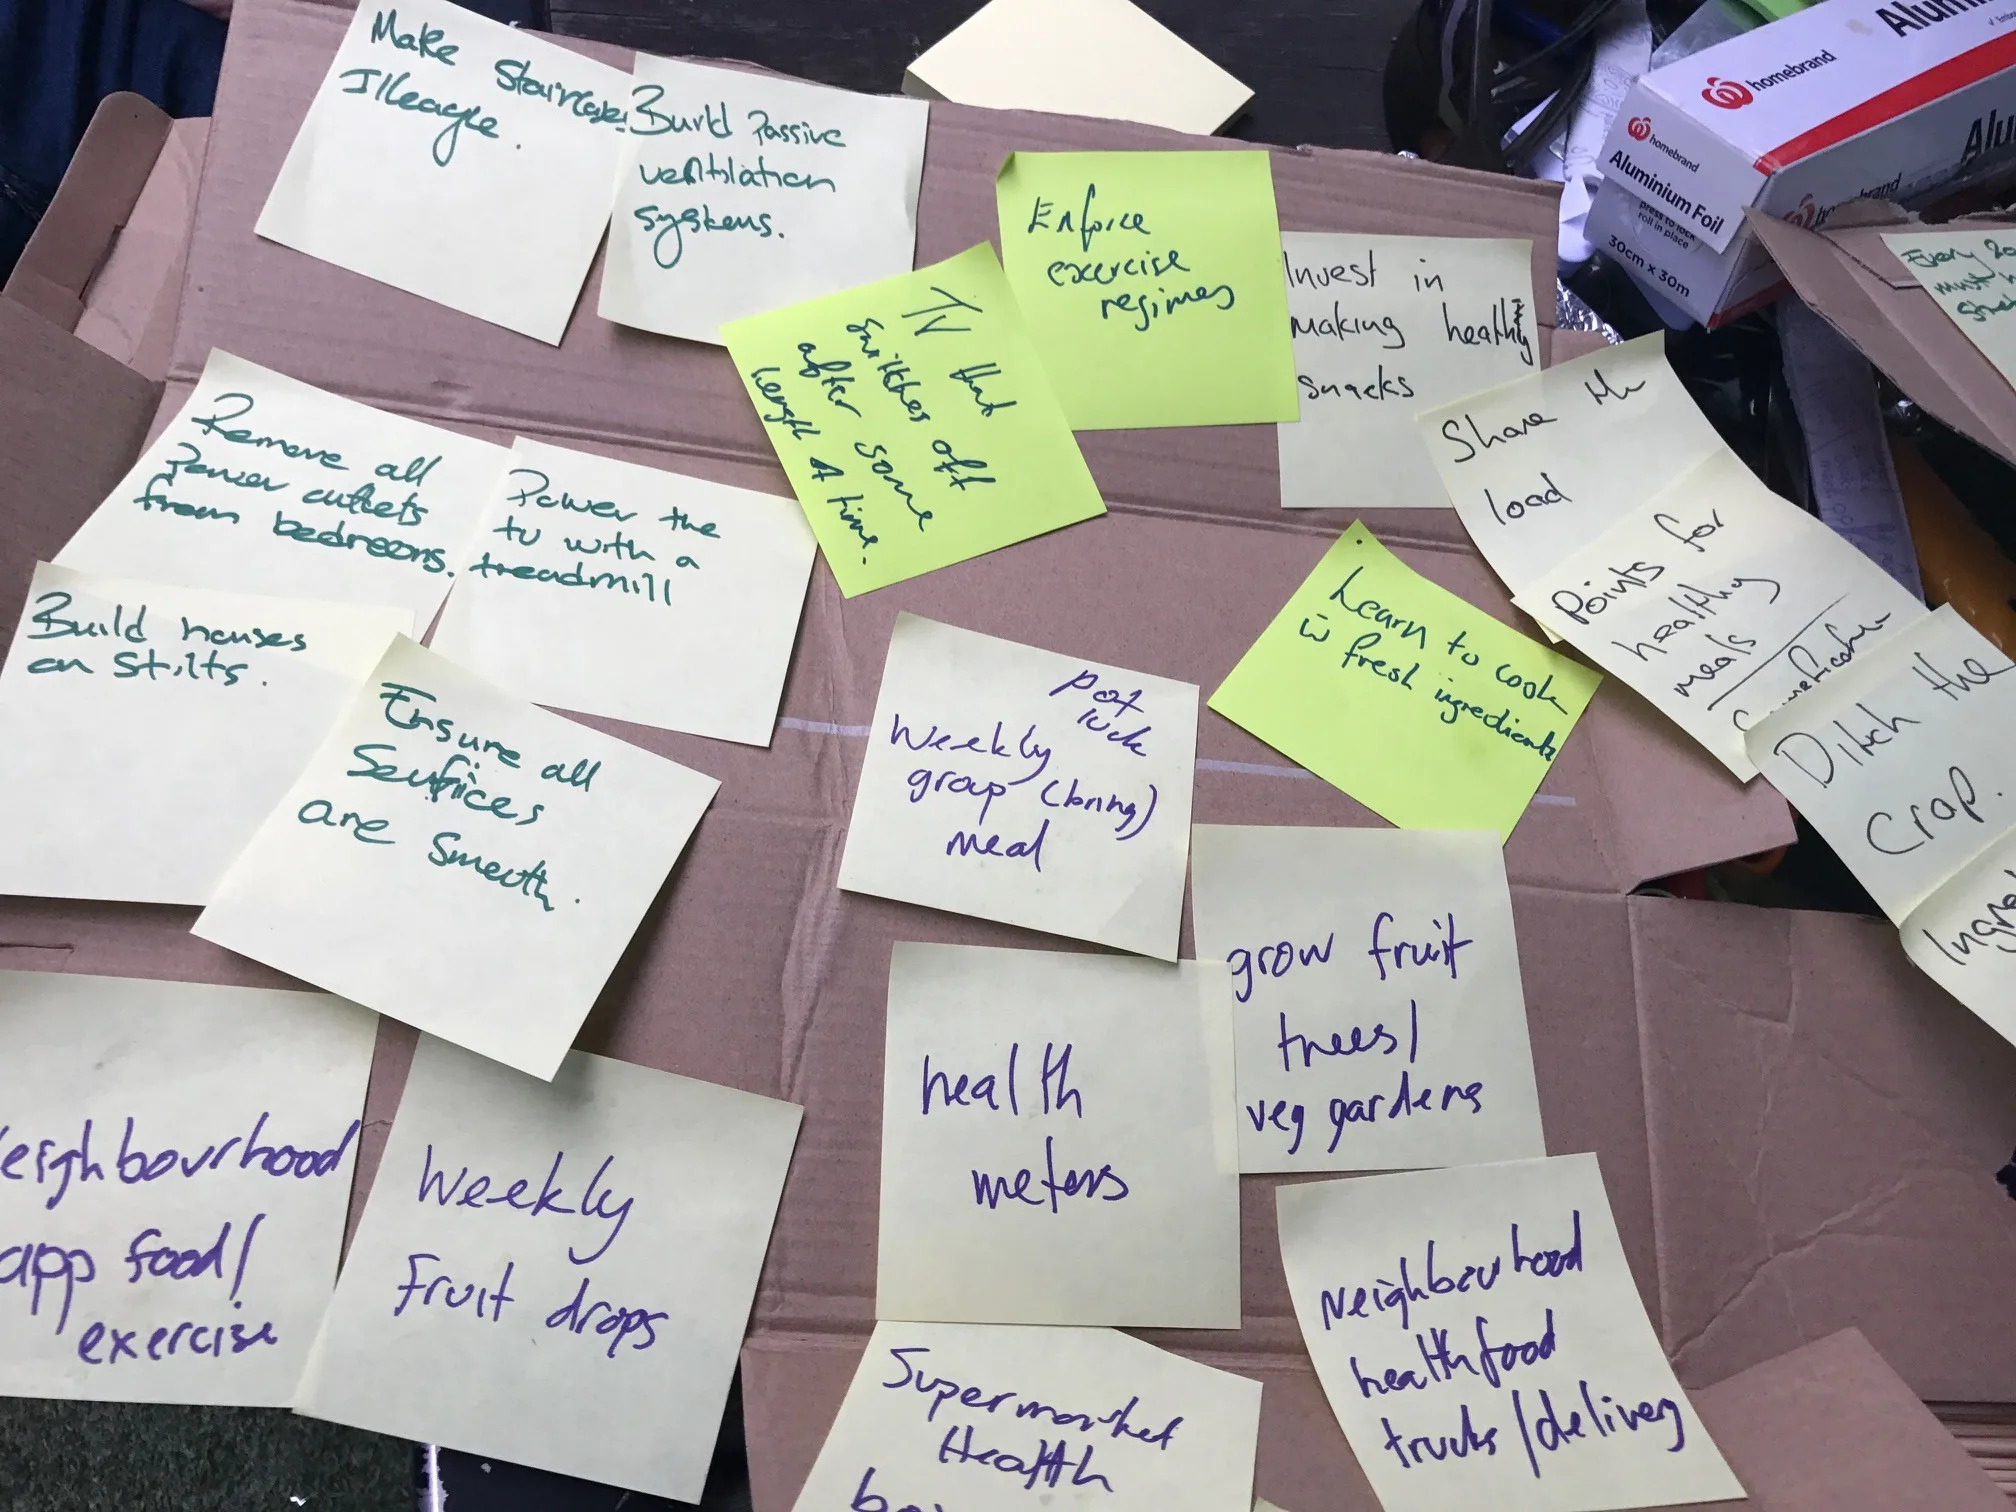 Make Staircases
Illeagle.
Build Passive
ventilation
systems.
Enforce
exercise
regimes
TV that
switches off
after some
length of time.
Invest in
making healthy
snacks
Share the
load
Points for
healthy
meals
Gamification
Ditch the
Crap.
Remove all
Power outlets
from bedrooms.
Power the
tv with a
treadmill
Build houses
on Stilts.
Ensure all
Surfices
are Smooth.
Pot
luck
Weekly
group (bring)
meal
Learn to cook
w fresh ingredients
grow fruit
trees/
veg gardens
health
meters
eighbourhood
app food/
exercise
Weekly
fruit drops
Neighbourhood
health food
trucks/delivery
Supermarket
Health
Every 20
must
homebrand
Alum
homebrand
Aluminium Foil
press to lock
roll in place
30cm x 30m
homebrand
Alu